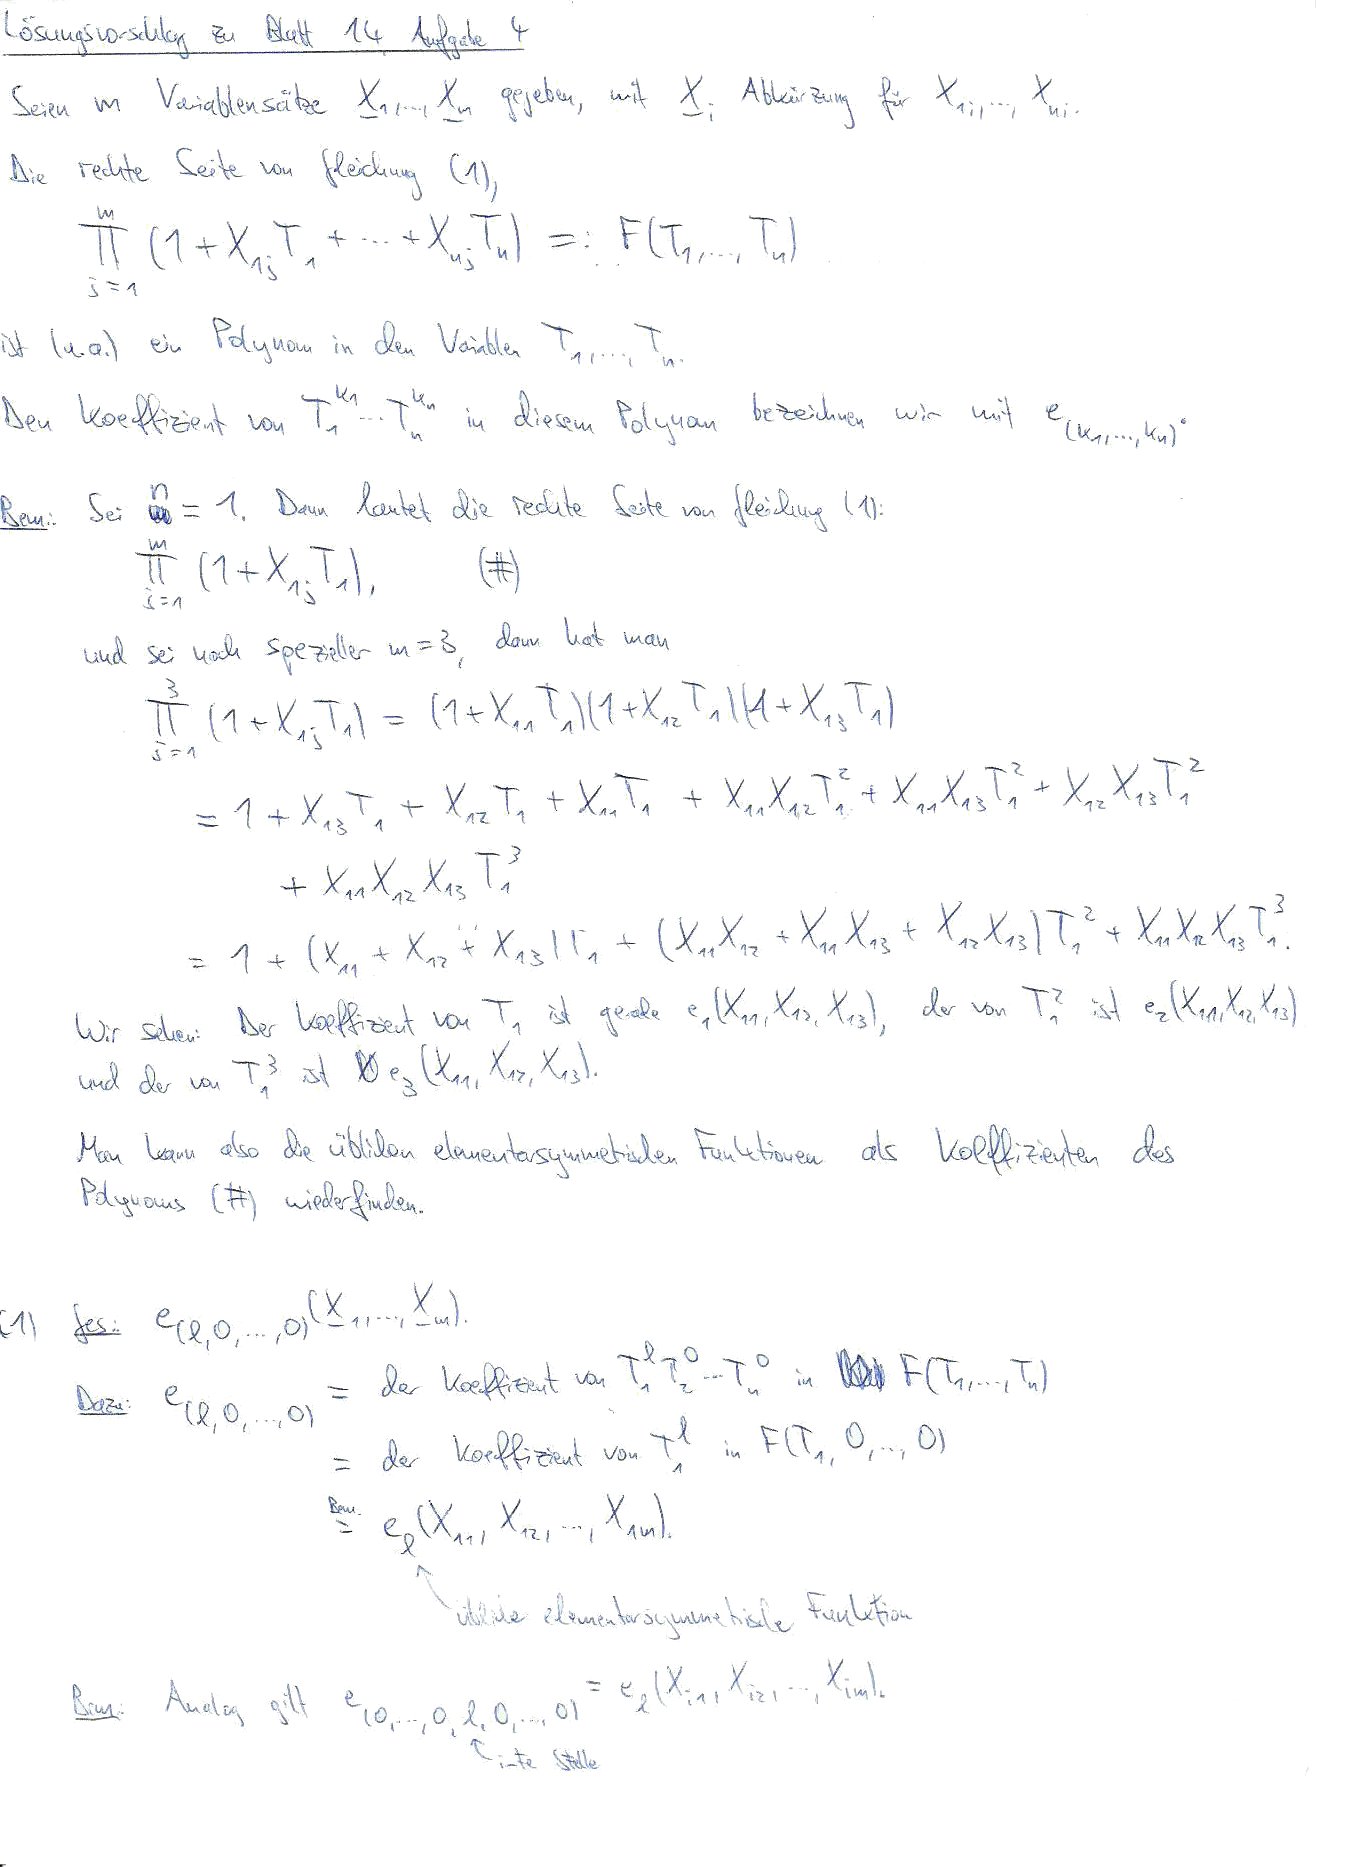 Lösungsvorschlag zu Blatt 14 Aufgabe 4
Seien m Variablensätze X_1,..., X_m gegeben, mit X_i Abkürzung für X_{1i},..., X_{ni}.
Die rechte Seite von Gleichung (1),
∏_{j=1}^{m} (1 + X_{1j} T_1 + ... + X_{nj} T_n) =: F(T_1,..., T_n)
ist (u.a.) ein Polynom in den Variablen T_1,..., T_n.
Den Koeffizient von T_1^{k_1} ... T_n^{k_n} in diesem Polynom bezeichnen wir mit e_{(k_1,...,k_n)}.
Bem.: Sei n = 1. Dann lautet die rechte Seite von Gleichung (1):
∏_{j=1}^{m} (1 + X_{1j} T_1), (#)
und sei noch spezieller m = 3, dann hat man
∏_{j=1}^{3} (1 + X_{1j} T_1) = (1 + X_{11} T_1)(1 + X_{12} T_1)(1 + X_{13} T_1)
= 1 + X_{13} T_1 + X_{12} T_1 + X_{11} T_1 + X_{11} X_{12} T_1^2 + X_{11} X_{13} T_1^2 + X_{12} X_{13} T_1^2
+ X_{11} X_{12} X_{13} T_1^3
= 1 + (X_{11} + X_{12} + X_{13}) T_1 + (X_{11} X_{12} + X_{11} X_{13} + X_{12} X_{13}) T_1^2 + X_{11} X_{12} X_{13} T_1^3.
Wir sehen: Der Koeffizient von T_1 ist gerade e_1(X_{11}, X_{12}, X_{13}), der von T_1^2 ist e_2(X_{11}, X_{12}, X_{13})
und der von T_1^3 ist e_3(X_{11}, X_{12}, X_{13}).
Man kann also die üblichen elementarsymmetrischen Funktionen als Koeffizienten des
Polynoms (#) wiederfinden.
(1) Ges.: e_{(l,0,...,0)}(X_1,..., X_m).
Dazu: e_{(l,0,...,0)} = der Koeffizient von T_1^l T_2^0 ... T_n^0 in F(T_1,..., T_n)
= der Koeffizient von T_1^l in F(T_1, 0,..., 0)
Bem.
= e_l(X_{11}, X_{12},..., X_{1m}).
übliche elementarsymmetrische Funktion
Bem.: Analog gilt e_{(0,...,0,l,0,...,0)} = e_l(X_{i1}, X_{i2},..., X_{im}).
i-te Stelle